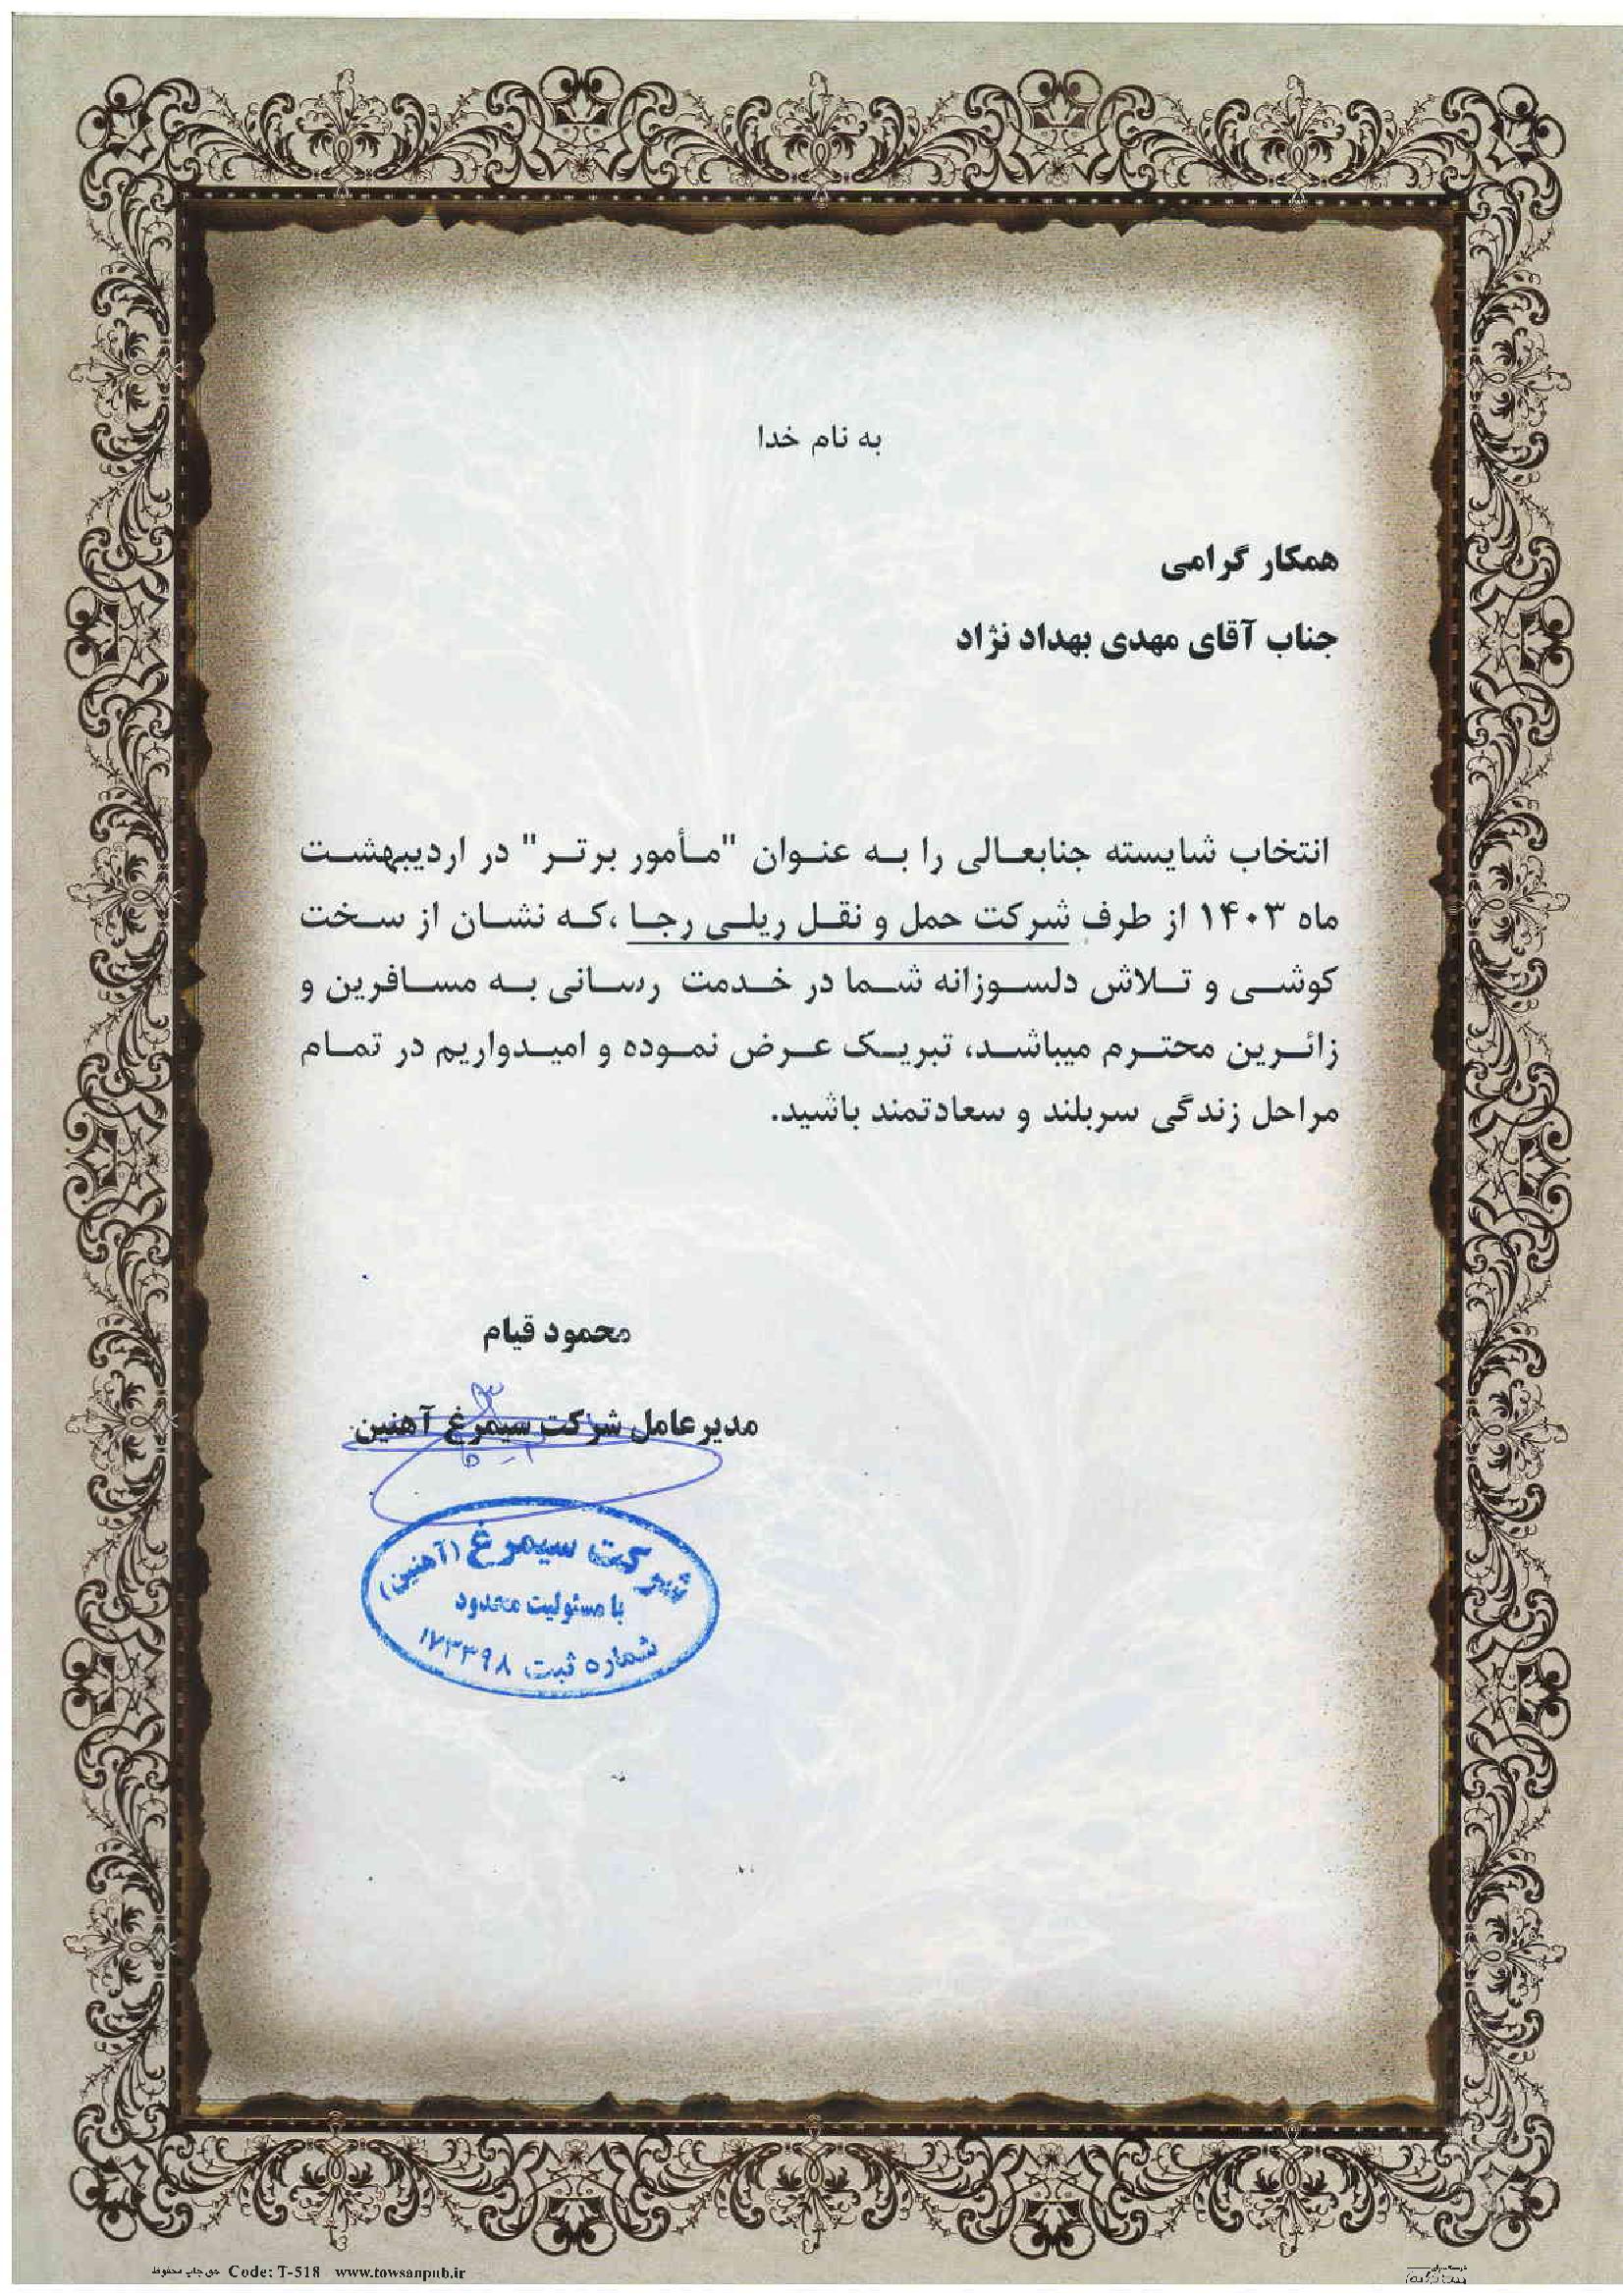 به نام خدا
همکار گرامی
جناب آقای مهدی بهداد نژاد
انتخاب شایسته جنابعالی را به عنوان "مأمور برتر" در اردیبهشت
ماه ۱۴۰۳ از طرف شرکت حمل و نقل ریلی رجا ،که نشان از سخت
کوشی و تلاش دلسوزانه شما در خدمت رسانی به مسافرین و
زائرین محترم میباشد، تبریک عرض نموده و امیدواریم در تمام
مراحل زندگی سربلند و سعادتمند باشید.
محمود قیام
مدیرعامل شرکت سیمرغ آهنین
شرکت سیمرغ (آهنین)
با مسئولیت محدود
شماره ثبت ۱۷۳۳۹۸
حق چاپ محفوظ Code: T-518 www.towsanpub.ir